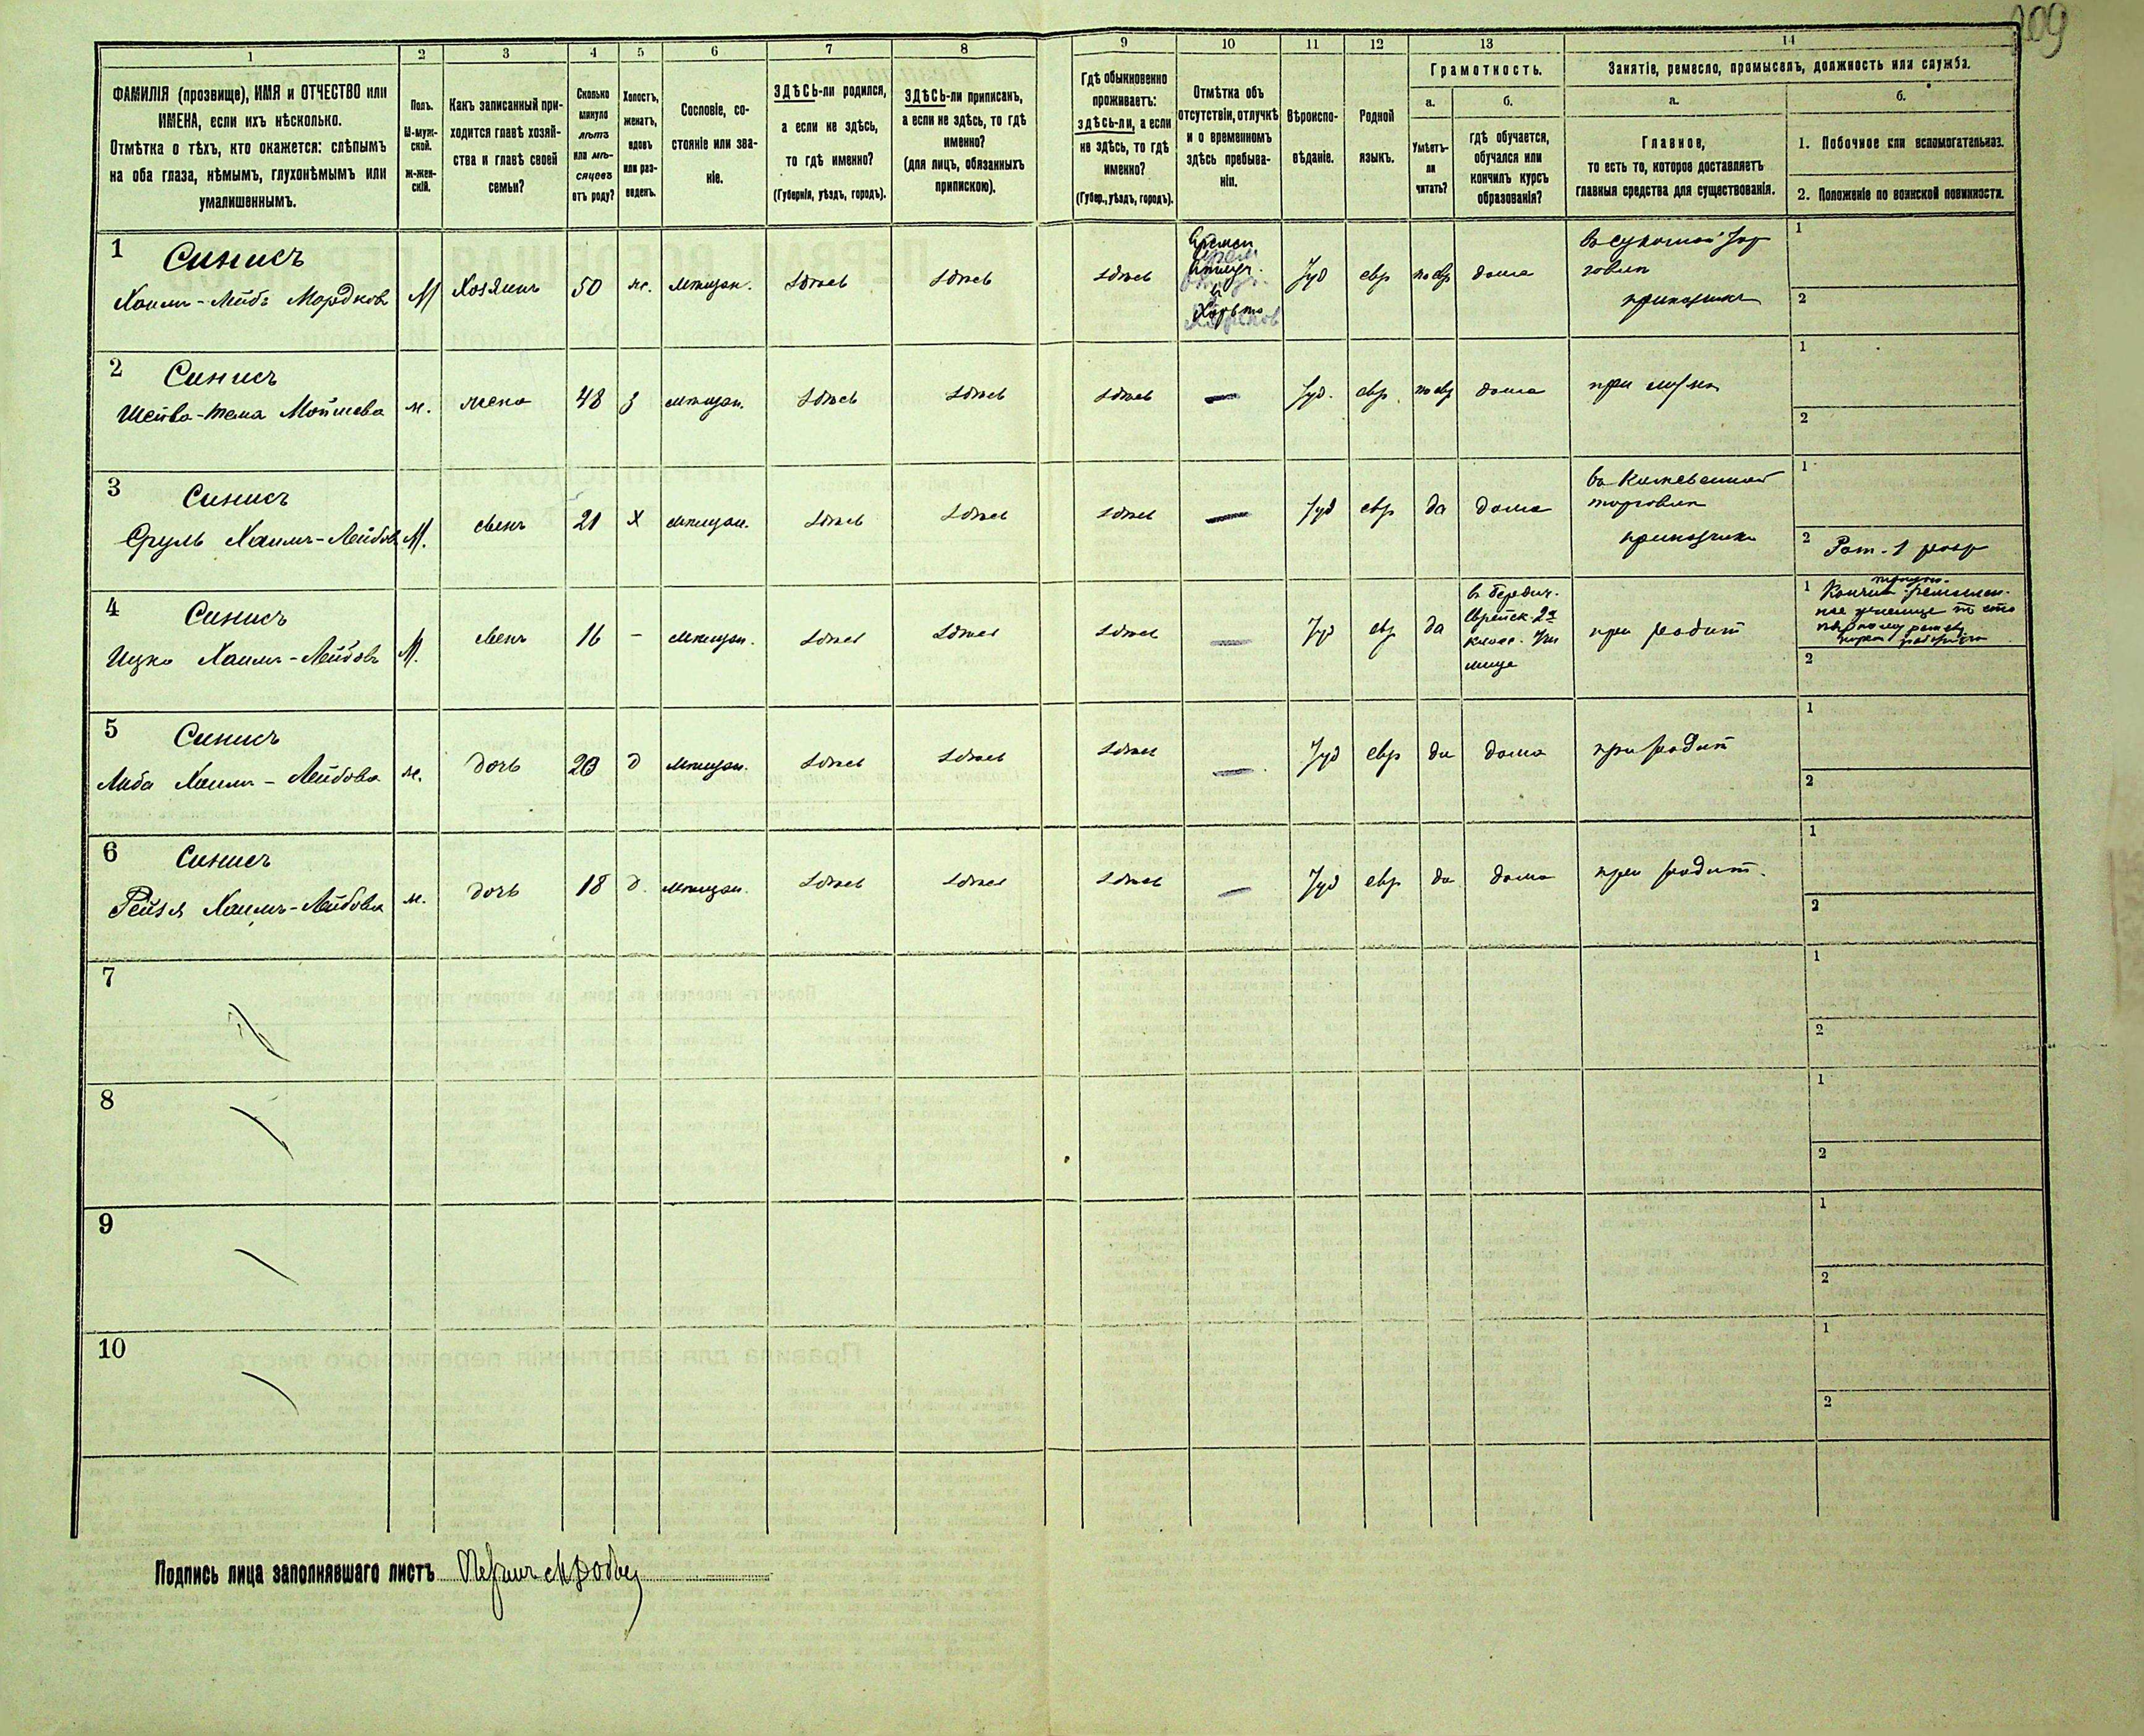 209
1
2
3
4
5
6
7
8
9
10
11
12
13
14
ФАМИЛІЯ (прозвище), ИМЯ и ОТЧЕСТВО или
ИМЕНА, если ихъ нѣсколько.
Отмѣтка о тѣхъ, кто окажется: слѣпымъ
на оба глаза, нѣмымъ, глухонѣмымъ или
умалишеннымъ.
Полъ.
М-муж-
ской.
Ж-жен-
скій.
Какъ записанный при-
ходится главѣ хозяй-
ства и главѣ своей
семьи?
Сколько
минуло
лѣтъ
или мѣ-
сяцевъ
отъ роду?
Холостъ,
женатъ,
вдовъ
или раз-
веденъ.
Сословіе, со-
стояніе или зва-
ніе.
ЗДѢСЬ-ли родился,
а если не здѣсь,
то гдѣ именно?
(Губернія, уѣздъ, городъ).
ЗДѢСЬ-ли приписанъ,
а если не здѣсь, то гдѣ
именно?
(для лицъ, обязанныхъ
припискою).
Гдѣ обыкновенно
проживаетъ:
здѣсь-ли, а если
не здѣсь, то гдѣ
именно?
(Губер., уѣздъ, городъ).
Отмѣтка объ
отсутствіи, отлучкѣ
и о временномъ
здѣсь пребыва-
ніи.
Вѣроиспо-
вѣданіе.
Родной
языкъ.
Грамотность.
а.
Умѣетъ-
ли
читать?
б.
гдѣ обучается,
обучался или
кончилъ курсъ
образованія?
Занятіе, ремесло, промыселъ, должность или служба.
а.
Главное,
то есть то, которое доставляетъ
главныя средства для существованія.
б.
1. Побочное или вспомогательное.
2. Положеніе по воинской повинности.
1 Синисъ
Хаимъ-Лейбъ Мордковъ
М
Хозяинъ
50
ж.
мѣщан.
здѣсь
здѣсь
здѣсь
Времен
Отлуч.
в
Іуд
евр
по евр
дома
въ суконной тор
говли
приказчикъ
1
2
2 Синисъ
Мошкова
ж.
жена
48
З
мѣщан.
здѣсь
здѣсь
здѣсь
—
Іуд.
евр.
по евр
дома
при мужѣ
1
2
3 Синисъ
Сруль Хаимъ-Лейбов
М.
сынъ
21
Х
мѣщан.
здѣсь
здѣсь
здѣсь
—
Іуд
евр
да
дома
въ Кожевенной
торговли
приказчикъ
1
2 Рат. 1 разр
4 Синисъ
Ицко Хаимъ-Лейбовъ
М.
сынъ
16
-
мѣщан.
здѣсь
здѣсь
здѣсь
—
Іуд
евр
да
въ Бердич.
Еврейск. 2х
класс. Учи
лище
при родит
1
2
5 Синисъ
Либа Хаимъ-Лейбова
ж.
дочь
20
д
мѣщан.
здѣсь
здѣсь
здѣсь
—
Іуд
евр
да
дома
при родит
1
2
6 Синисъ
Рейзя Хаимъ-Лейбова
ж.
дочь
18
д.
мѣщан.
здѣсь
здѣсь
здѣсь
—
Іуд
евр
да
дома
при родит.
1
2
7
1
2
8
1
2
9
1
2
10
1
2
Подпись лица заполнявшаго листъ